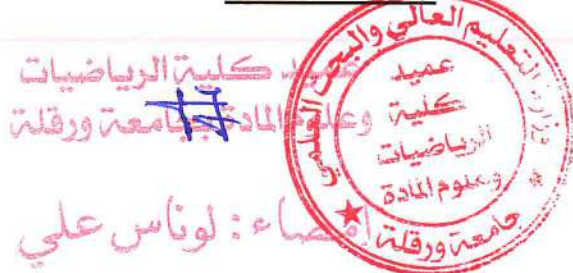 عميد كلية الرياضيات
وعلوم المادة بجامعة ورقلة
امضاء : لوناس علي
وزارة التعليم العالي والبحث العلمي
عميد
كلية
الرياضيات
وعلوم المادة
جامعة ورقلة